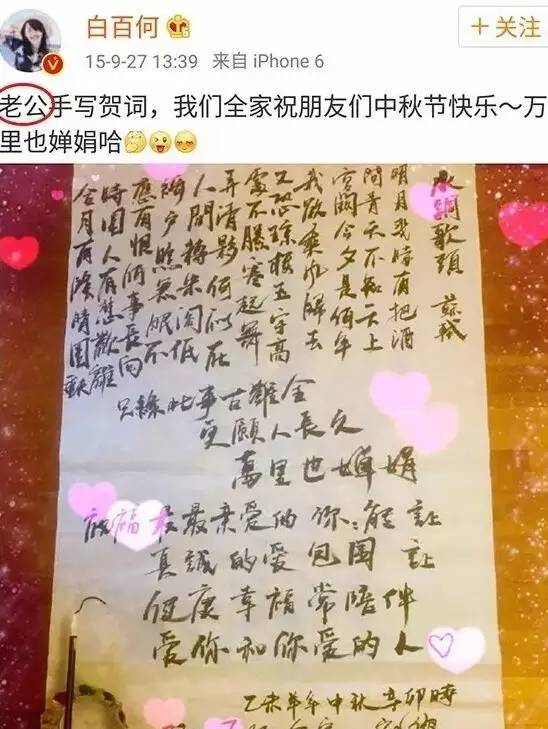 白百何
+关注
15-9-27 13:39 来自 iPhone 6
老公手写贺词，我们全家祝朋友们中秋节快乐～万
里也婵娟哈
水調歌頭 蘇軾
明月幾時有把酒
問青天不知天上
宮闕今夕是何年
我欲乘风歸去
又恐琼楼玉宇高
處不勝寒起舞
弄清影何似在
人間轉朱阁低
綺户照無眠不
應有恨何事長向
時圆人有悲歡離
合月有陰晴圆缺
只緣此事古難全
更願人長久
萬里也嬋娟
祝福最最亲爱的你：能让
真誠的爱包围 让
健康幸福常陪伴
爱你和你爱的人
乙未羊年中秋辛卯時